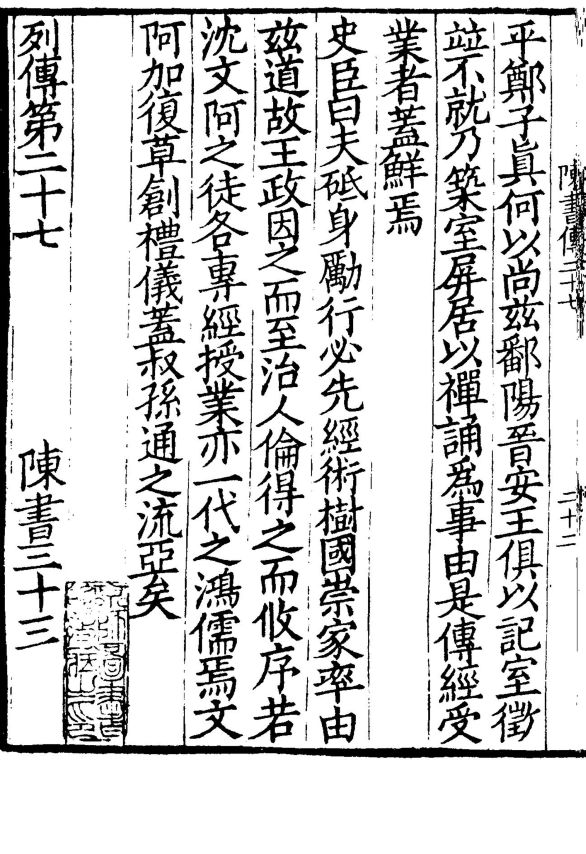 陳書傳二十七
二十二
平鄭子眞何以尚兹鄱陽晉安王俱以記室徵
竝不就乃築室屏居以禪誦爲事由是傳經受
業者蓋鮮焉
史臣曰夫砥身勵行必先經術樹國崇家率由
兹道故王政因之而至治人倫得之而攸序若
沈文阿之徒各專經授業亦一代之鴻儒焉文
阿加復草創禮儀蓋叔孫通之流亞矣
列傳第二十七
陳書三十三